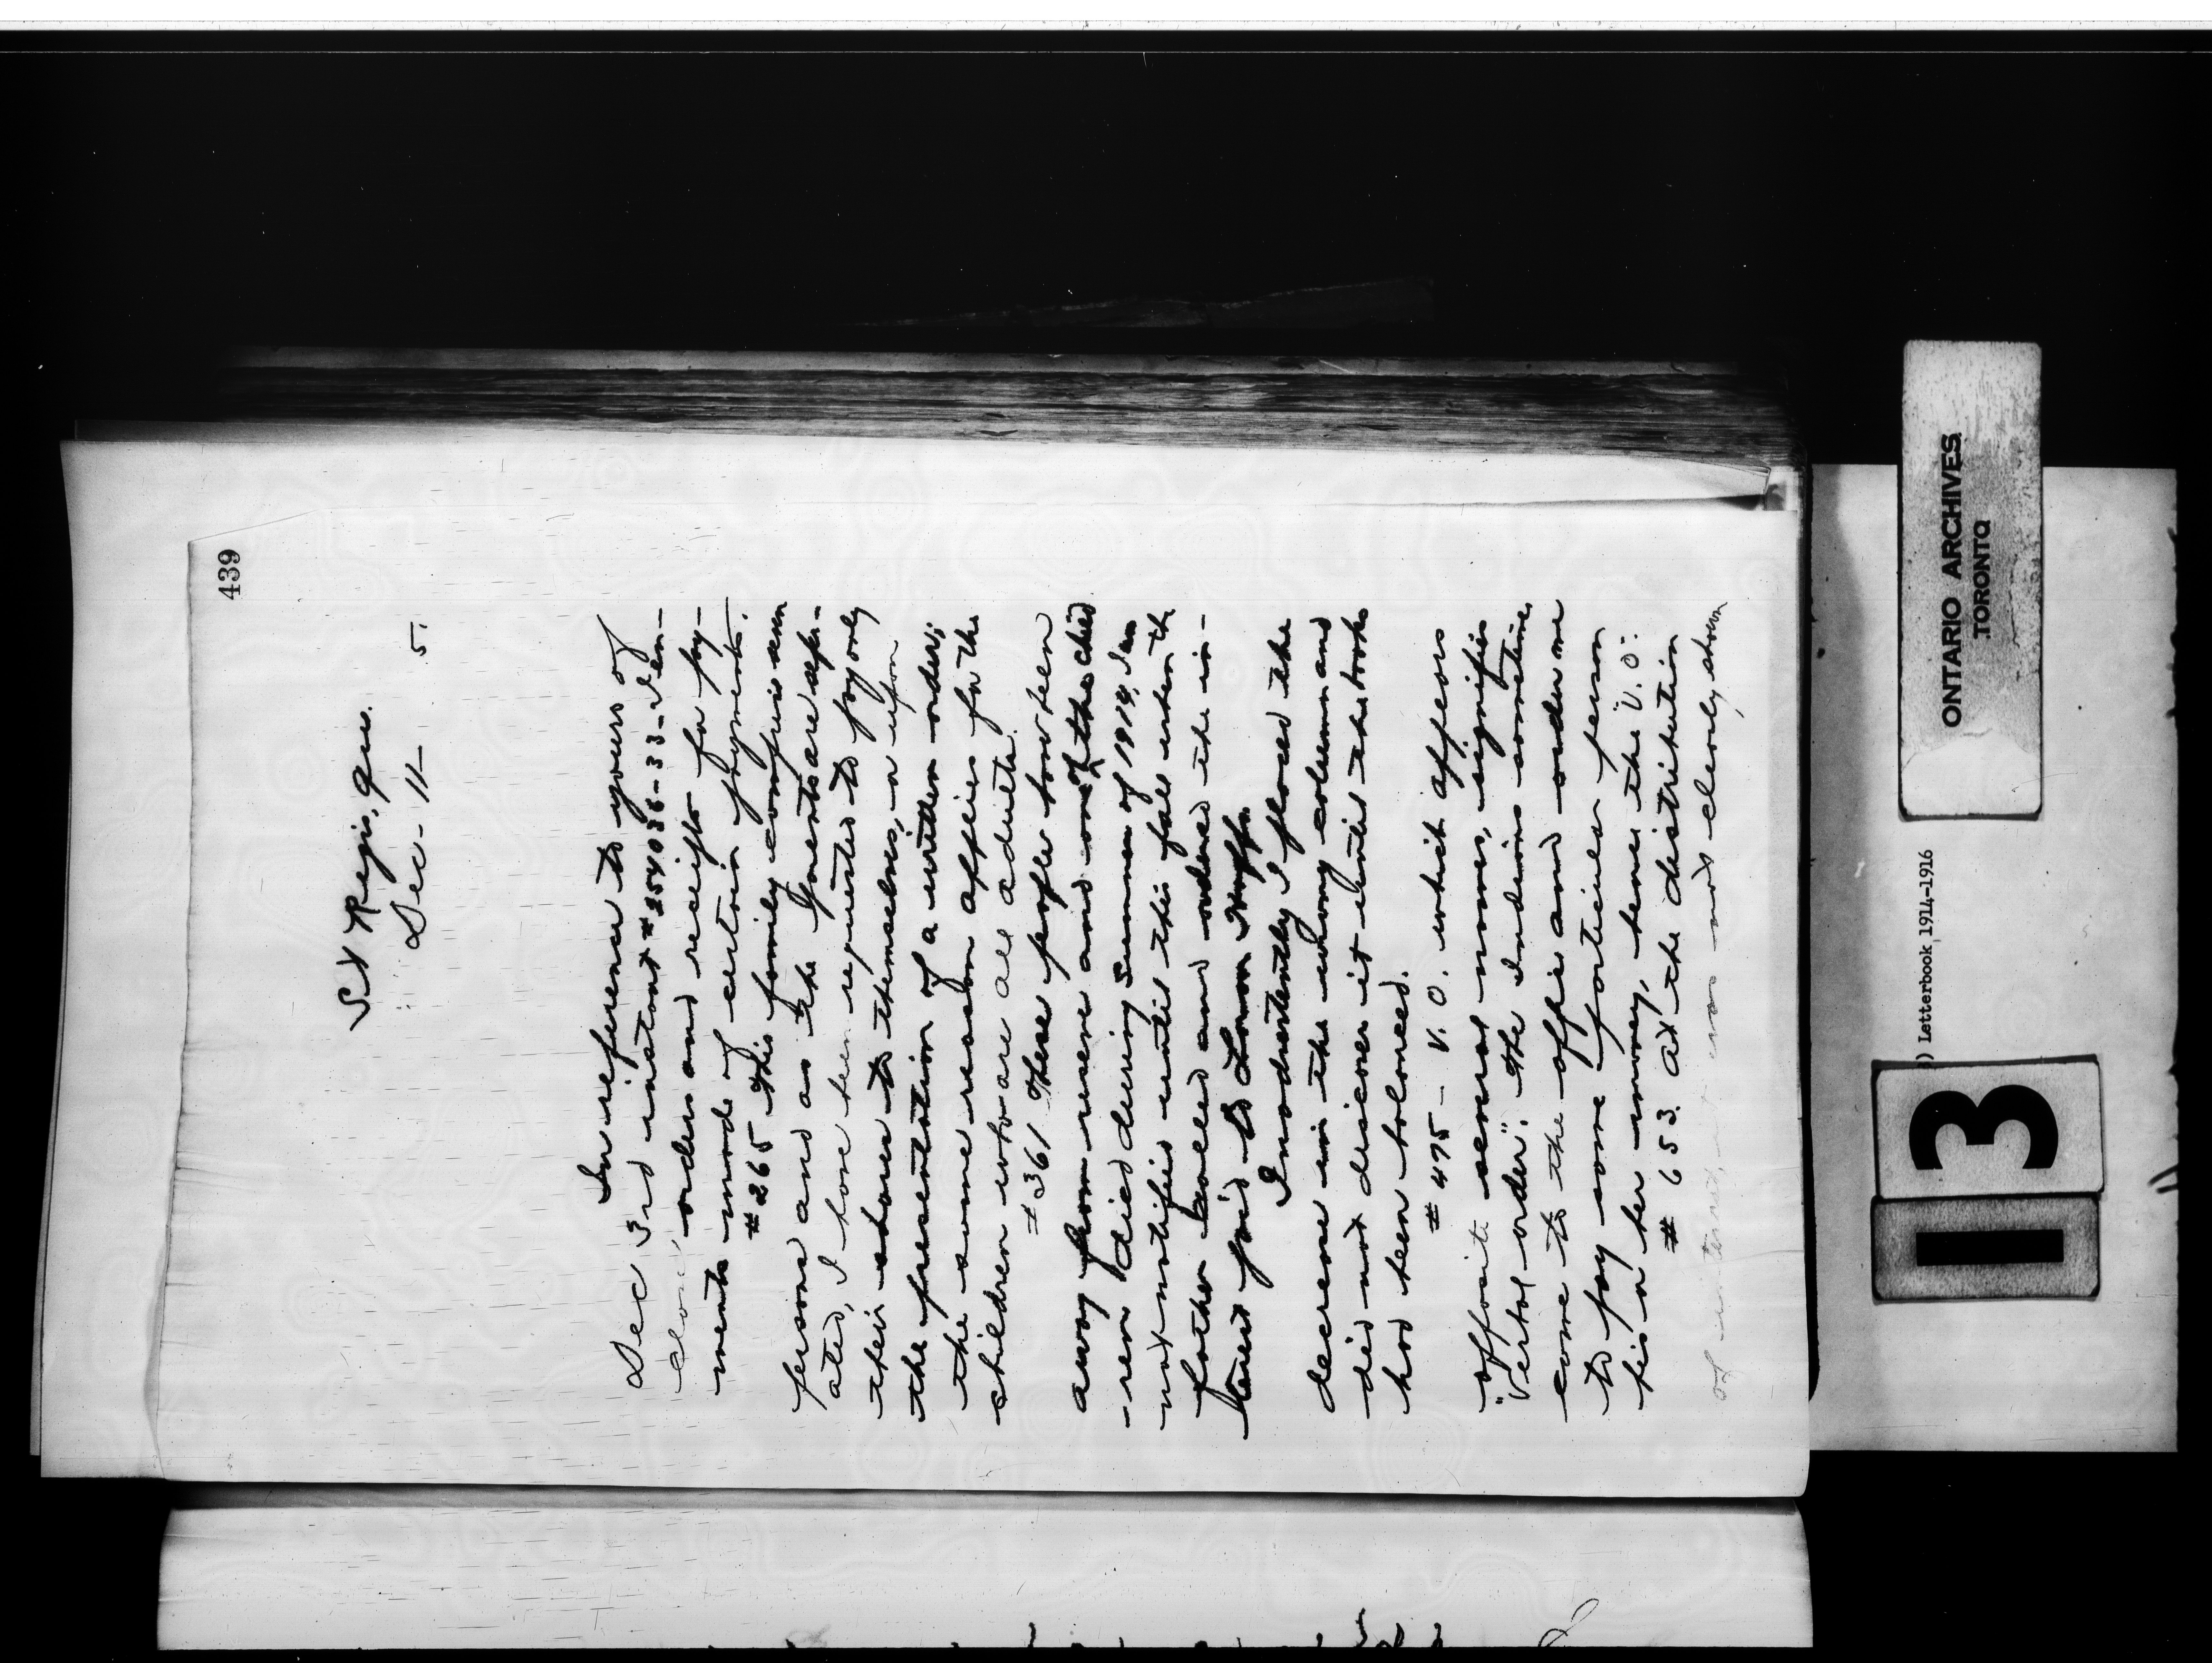 439
St Regis, Que.
Dec - 11 - 5.
In reference to yours of
Dec 3rd instant # 254036-33 - I en-
close orders and receipts for pay-
ments made of certain payments.
# 265 This family comprises seven
persons and as the parents are separ-
ated, I have been requested to pay only
their shares to themselves, or upon
the presentation of a written order;
the same reason applies for the
children who are all adults.
# 361 These people have been
away from reserve and one of the child
-ren died during Summer of 1914, I was
not notified until this fall when the
father called and ordered the in-
terest paid to
Inadvertently I placed the
decrease in the wrong column and
did not discover it until the books
had been balanced.
# 475 - V. O. which appears
opposite several names, signifies
"Verbal order". The Indians sometime
come to the office and order me
to pay some particular person
his or her money, hence the "V. O."
# 653. At the distribution
of interest, it was not clearly shown
ONTARIO ARCHIVES
TORONTO
) Letterbook 1914-1916
13